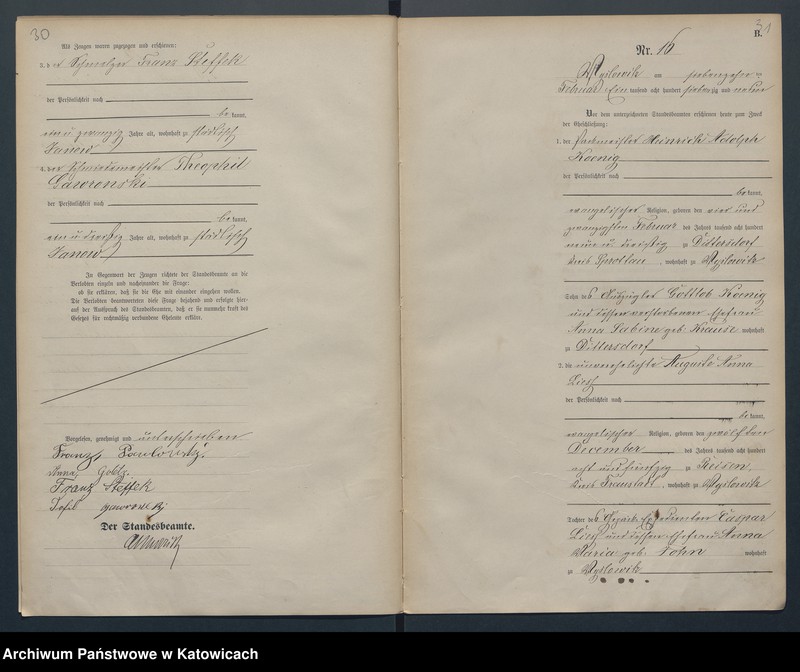 30
Als Zeugen waren zugezogen und erschienen:
3. der Schmelzer Franz Steffek
der Persönlichkeit nach
be kannt,
ein u zwanzig Jahre alt, wohnhaft zu städtisch
Janow
4. der Schmiedemeister Theophil
Gaworonski
der Persönlichkeit nach
be kannt,
ein u dreißig Jahre alt, wohnhaft zu städtisch
Janow
In Gegenwart der Zeugen richtete der Standesbeamte an die
Verlobten einzeln und nacheinander die Frage:
ob sie erklären, daß sie die Ehe mit einander eingehen wollen.
Die Verlobten beantworteten diese Frage bejahend und erfolgte hier-
auf der Ausspruch des Standesbeamten, daß er sie nunmehr kraft des
Gesetzes für rechtmäßig verbundene Eheleute erkläre.
Vorgelesen, genehmigt und unterschrieben
Franz
Anna Goltz
Franz Steffek
Gaworonski
Der Standesbeamte.
31
B.
Nr. 16
Myslowitz am siebenzehnten
Februar Ein tausend acht hundert siebenzig und neun
Vor dem unterzeichneten Standesbeamten erschienen heute zum Zweck
der Eheschließung:
1. der Packmeister Heinrich Adolph
Koenig
der Persönlichkeit nach
be kannt,
evangelischer Religion, geboren den vier und
zwanzigsten Februar des Jahres tausend acht hundert
neun u dreißig zu Dittersdorf
Kreis Sprottau, wohnhaft zu Myslowitz
Sohn des Auszügler Gottlob Koenig
und dessen verstorbenen Ehefrau
Anna Sabine geb Krause wohnhaft
zu Dittersdorf
2. die unverehelichte Auguste Anna
Liesch
der Persönlichkeit nach
be kannt,
evangelischer Religion, geboren den zwölften
December des Jahres tausend acht hundert
acht und fünfzig zu Reisen,
Kreis Fraustadt, wohnhaft zu Myslowitz
Tochter des Gepäck Expedienten Caspar
Liesch und dessen Ehefrau Anna
Maria geb. wohnhaft
zu Myslowitz
Archiwum Państwowe w Katowicach